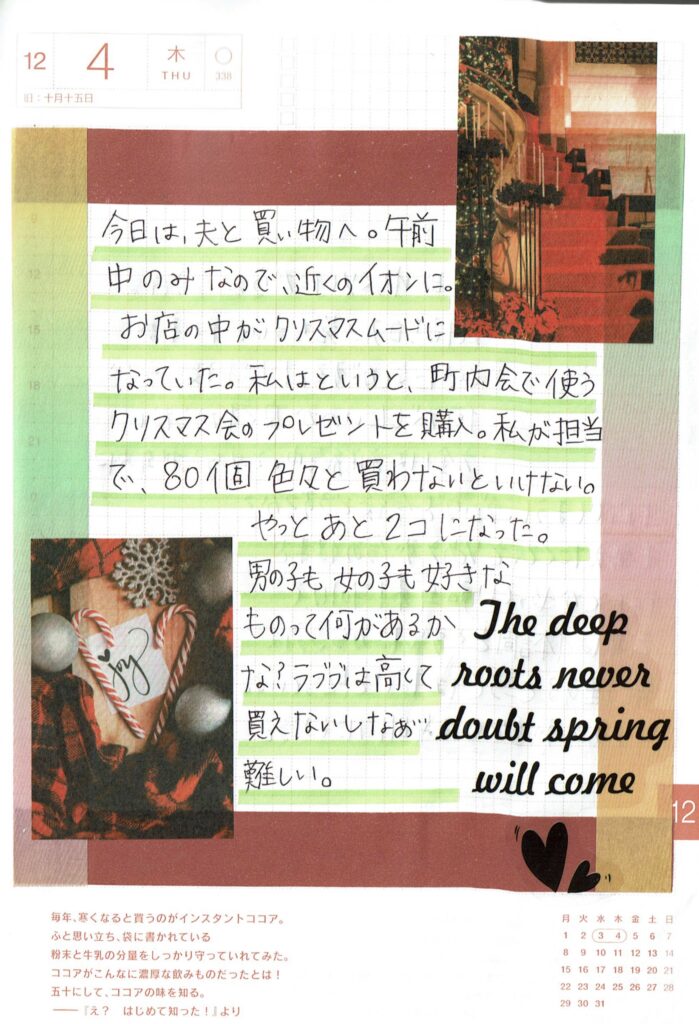 12 4 木 THU 338
旧：十月十五日
今日は、夫と買い物へ。午前
中のみなので、近くのイオンに。
お店の中がクリスマスムードに
なっていた。私はというと、町内会で使う
クリスマス会のプレゼントを購入。私が担当
で、80個色々と買わないといけない。
やっとあと2コになった。
男の子も女の子も好きな
ものって何があるか
な？ラブブは高くて
買えないしなぁ…
難しい。
joy
The deep
roots never
doubt spring
will come
12
毎年、寒くなると買うのがインスタントココア。
ふと思い立ち、袋に書かれている
粉末と牛乳の分量をしっかり守っていれてみた。
ココアがこんなに濃厚な飲みものだったとは！
五十にして、ココアの味を知る。
――『え？　はじめて知った！』より
月 火 水 木 金 土 日
1 2 3 4 5 6 7
8 9 10 11 12 13 14
15 16 17 18 19 20 21
22 23 24 25 26 27 28
29 30 31